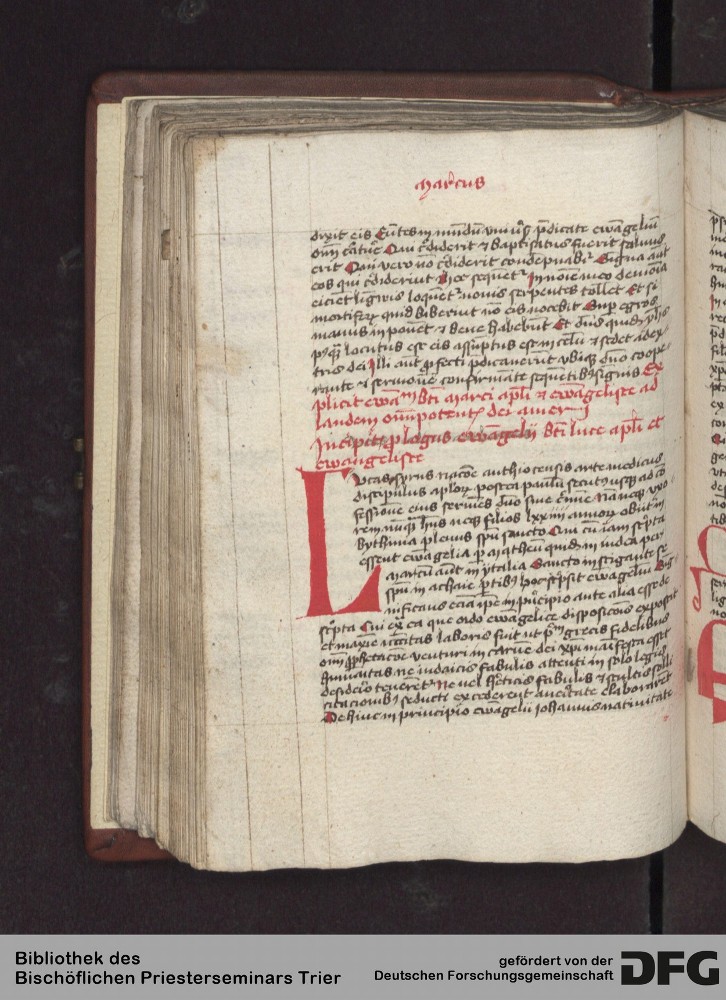 Marcus
dixit eis Eūtes in mūdum vniūsū p̄dicate ewāgeliū
om̄i c̄atur̄e Qui c̄diderit ⁊ baptisatus fuerit saluus
erit Qui vero nō c̄diderit condēpnabit᷑ Signa aut̄
eos qui c̄diderint hec sequent᷑ In noīe meo demonia
eicient lingwis loquent᷑ nouis serpentes tollēt Et si
mortiferū quid biberint nō eis nocebit Sup̄ egros
manus inponent ⁊ bene habebūt Et dn̄s quidē
locutus est eis assūptus est in celū ⁊ sedet a dex
tris dei Illi aut̄ p̄fecti p̄dicauerūt vbiqꝫ dn̄o coope
rante ⁊ sermonē confirmāte sequentibꝫ signis Ex
plicit ewāḡm bt̄i marci apl̄i ⁊ ewāgeliste ad
laudem om̄ipotentis dei amen
Incipit p̄logus ewāgelij bt̄i luce apl̄i et
ewangeliste
Lucas syrus nacōe anthiocensis arte medicus
discipulus apl̄orū postea paulū secutꝫ vsqꝫ ad cō
fessionē eius seruiēs dn̄o sine c̄mine Nā neqꝫ vxo
rem nūqꝫ hn̄s neqꝫ filios lxxiiii annorū obijt in
bythinia plenus spū sancto Qui cū iam sc̄pta
essent ewāgelia p̄ matheū quidē in iudea per
marcū aut̄ in ytalia Sancto instigante
spū in achaie p̄tibꝫ hoc sc̄psit ewāgeliū Sig
nificans eciā ip̄e in p̄ncipio ante alia esse de
sc̄pta Cui ex̄ ea que ordo ewāgelice disposicōis exposcit
et maxīe nccītas laboris fuit ut p̄m grecis fidelibus
om̄i p̄phetacōe venturi in carnē dei xp̄i manifesta esset
humanitas ne iudaicis fabulis attenti in solo legis
desiderio tenerēt᷑ Ne vel hēticis fabulis ⁊ stultis solli
citacionibꝫ seducti excederent a veritate elaboraret
Dehinc in principio ewāgelij iohannis natiuitate
Bibliothek des
Bischöflichen Priesterseminars Trier
gefördert von der
Deutschen Forschungsgemeinschaft
DFG